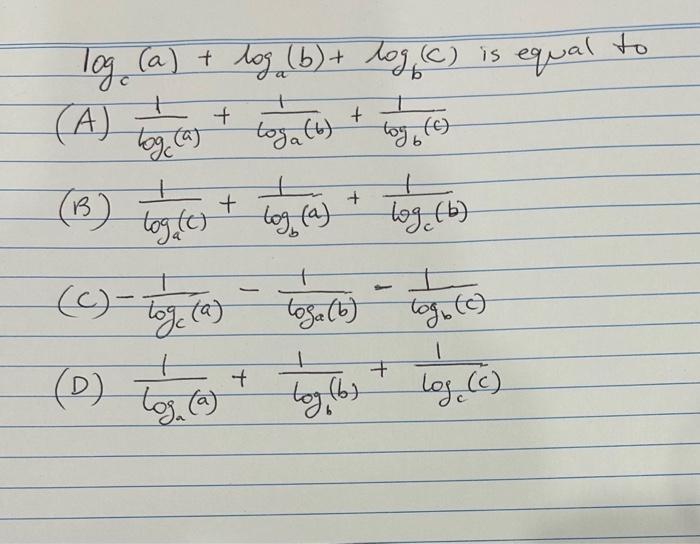 log_c (a) + log_a (b) + log_b (c) is equal to
(A) 1/log_c (a) + 1/log_a (b) + 1/log_b (c)
(B) 1/log_a (c) + 1/log_b (a) + 1/log_c (b)
(C) - 1/log_c (a) - 1/log_a (b) - 1/log_b (c)
(D) 1/log_a (a) + 1/log_b (b) + 1/log_c (c)